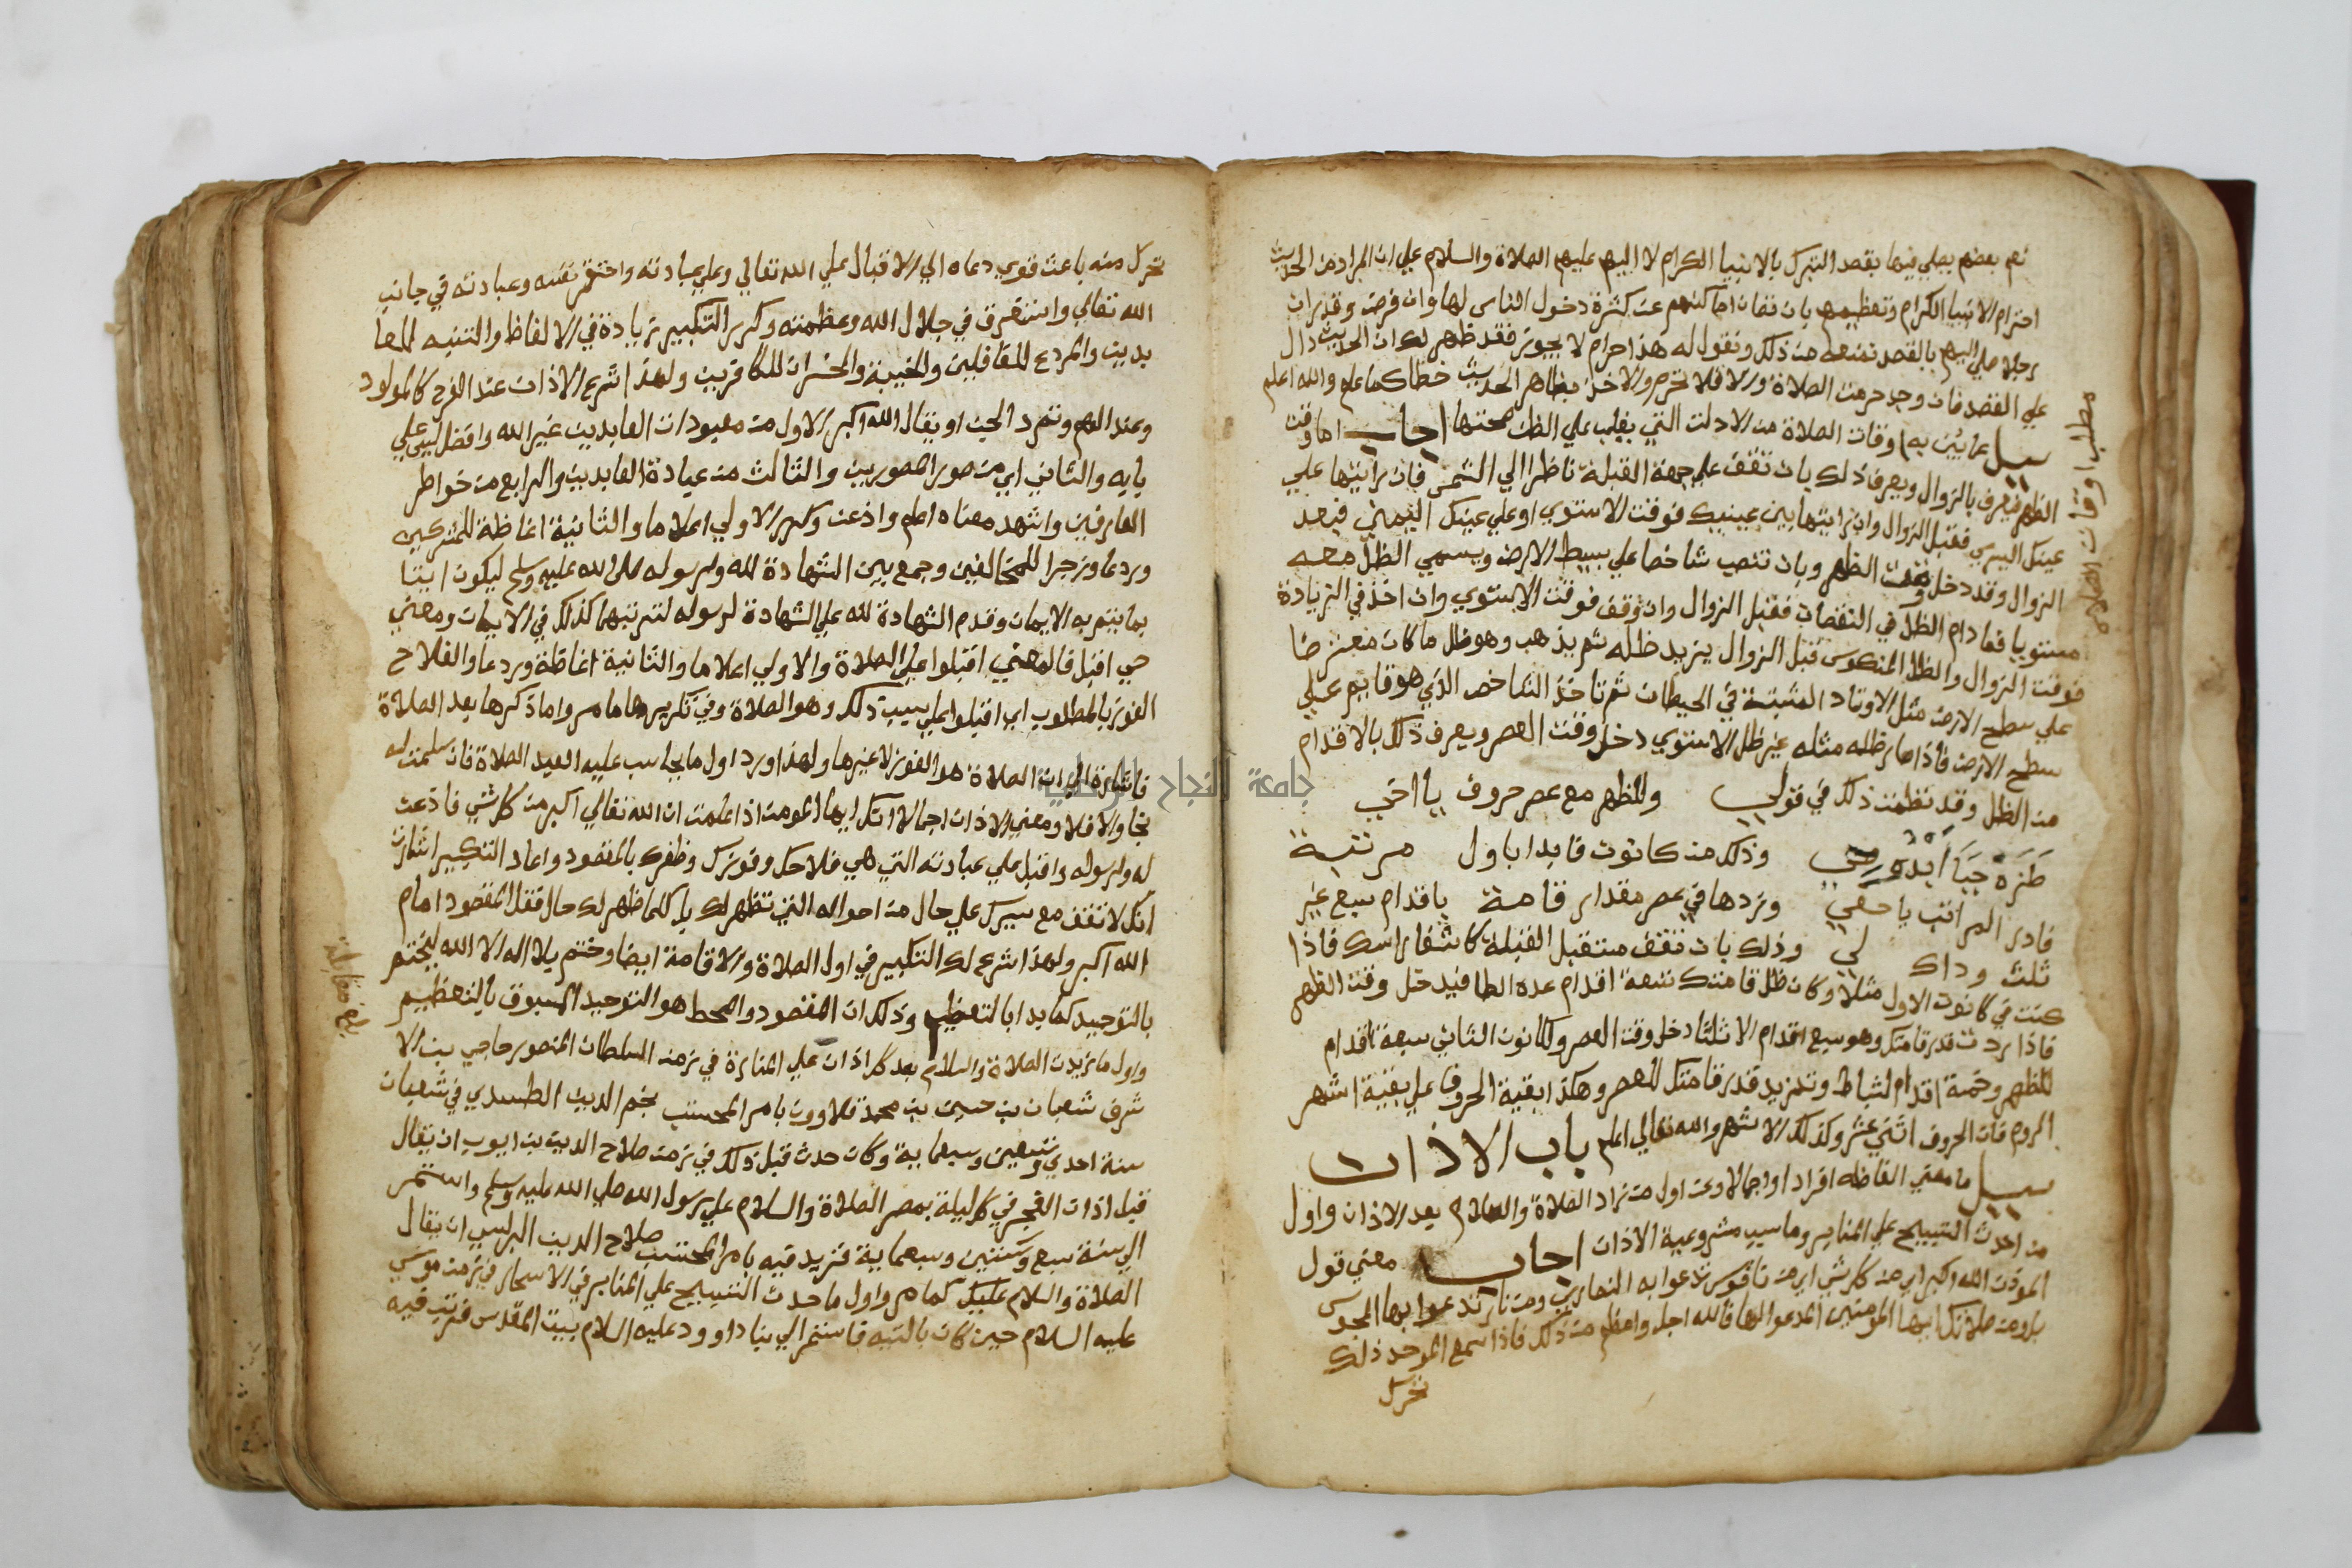 نعم بعضهم يصلي فيها بقصد التبرك بالانبيا الكرام لا اليهم عليهم الصلاة والسلام علي ان المراد من الحديث
احترام الانبيا الكرام وتعظيمهم بان تصان اماكنهم عن كثرة دخول الناس لها وان فرض وقد ران
رجلا صلي اليهم بالقصد نمنعه من ذلك ونقول له هذا حرام لا يجوز فقد ظهر لك ان الحديث دال
علي القصد فان وجد حرمت الصلاة والا فلا تحرم والاخذ بظاهر الحديث خطا كما علم والله اعلم
سيل عما يبن به اوقات الصلاة من الادلت التي يغلب علي الظن صحتها اجاب اما وقت
الظهر فيعرف بالزوال ويعرف ذلك بان تقف علي جهة القبلة ناظرا الي الشمس فان رايتها علي
عينك اليسري فقبل الزوال وان رايتها بين عينيك فوقت الاستوي او علي عينك اليمني فبعد
الزوال وقد دخل وقت الظهر وبان تنصب شاخصا علي بسيط الارض ويسمي الظل معه
مستويا فما دام الظل في النقصان فقبل الزوال وان وقف فوقت الاستوي وان اخذ في الزيادة
فوقت الزوال والظل المنكوس قبل الزوال يزيد ظله ثم يذهب وهو ظل ما كان معترضا
علي سطح الارض مثل الاوتاد المثبتة في الحيطان ثم تاخذ الشاخص الذي هو قايم علي
سطح الارض فاذا صار ظله مثله غير ظل الاستوي دخل وقت العصر ويعرف ذلك بالاقدام
من الظل وقد نظمت ذلك في قولي وللظهر مع عصر حروف يا اخي
طزه جبا ابدوحي وذلك من كانون فابدا باول مرتبة
فادر المراتب يا صفي وزدها في عصر مقدار قامة باقدام سبع غير
ثلث وداك لي وذلك بان تقف مستقبل القبلة كاشفا راسك فاذا
كنت في كانون الاول مثلا وكان ظل قامتك تسعة اقدام عده الطا فيدخل وقت الظهر
فاذا زدت قدر قامتك وهو سبع اقدام الا ثلثا دخل وقت العصر ولكانون الثاني سبعة اقدام
للظهر وخمسة اقدام لشباط وتمزيد قدر قامتك للعصر وهكذا بقية الحروف علي بقية اشهر
الروم فان الحروف اثني عشر وكذلك الاشهر والله تعالي اعلم باب الاذان
سيل ما معني الفاظه افرادا واجمالا وعن اول من زاد الصلاة والسلام بعد الاذان واول
من احدث التسبيح علي المناير وما سبب مشروعية الاذان اجاب معني قول
الموذن الله اكبر اي من كل شي اي من ناقوس تدعوا به النصاري ومن نار تدعوا بها المجوس
بل ومن صلاتك ايها المومنين المدعوا لها فالله اجل واعظم من ذلك فاذا سمع الموحد ذلك
تحرك
مطلب اوقات الصلاة
تحرك منه باعث قوي دعاه الي الاقبال علي الله تعالي وعلي عبادته واحتقر نفسه وعبادته في جانب
الله تعالي واستغرق في جلال الله وعظمته وكرر التكبير زيادة في الالفاظ والتنبه للعا
بدين والردع للغافلين والخيبة والخسران للكافرين ولهذا شرع الاذان عند الفرح كالمولود
وعند الهم وتمرد الجن او يقال الله اكبر الاول من معبودات العابدين غير الله وافضل لبي علي
بابه والثاني اي من صور المصورين والثالث من عبادة العابدين والرابع من خواطر
العارفين واشهد معناه اعلم واذعن وكرر الاولي اعلاما والثانية اغاظة للمشركين
وردعا وزجرا للمخالفين وجمع بين الشهادة لله ولرسوله صلي الله عليه وسلم ليكون ايتا
بما يتم به الايمان وقدم الشهادة لله علي الشهادة لرسوله لترتبهما كذلك في الايمان ومعني
حي اقبل فالمعني اقبلوا علي الصلاة والاولي اعلاما والثانية اغاظة وردعا والفلاح
الفوز بالمطلوب اي اقبلوا علي سبب ذلك وهو الصلاة وفي تكريرها ما مر واما ذكرها بعد الصلاة
فاشارة الي ان الصلاة هو الفوز لا غيرها ولهذا ورد اول ما يحاسب عليه العبد الصلاة فان سلمت له
نجا والا فلا ومعني الاذان اجمالا انك ايها المومن اذا علمت ان الله تعالي اكبر من كل شي فاذعن
له ولرسوله واقبل علي عبادته التي هي فلاحك وفوزك وظفرك بالمقصود واعاد التكبير اشارة
انك لا تقف مع سيرك علي حال من احواله التي تظهر لك بل كلما ظهر لك حال فقل المقصود امام
الله اكبر ولهذا شرع لك التكبير في اول الصلاة والاقامة ايضا وختم بلا اله الا الله ليختم
بالتوحيد كما بدا بالتعظيم وذلك ان المقصود والمحط هو التوحيد المسبوق بالتعظيم
واول ما زيدت الصلاة والسلام بعد كل اذان علي المنارة في زمن السلطان المنصور حاجي بن الا
شرف شعبان بن حسين بن محمد قلاوون بامر المحتسب نجم الدين الطنبدي في شعبان
سنة احدي وتسعين وسبعماية وكان حدث قبل ذلك في زمن صلاح الدين بن ايوب ان يقال
قبل اذان الفجر في كل ليلة بمصر الصلاة والسلام علي رسول الله صلي الله عليه وسلم واستمر
الي سنة سبع وستين وسبعماية فزيد فيه بامر المحتسب صلاح الدين البرلسي ان يقال
الصلاة والسلام عليك كما مر واول ما حدث التسبيح علي المنابر في الاسحار في زمن موسي
عليه السلام حين كان بالتيه فاستمر الي بنا داوود عليه السلام بيت المقدس فرتب فيه
بلغ مقابلة
جامعة النجاح الوطنية